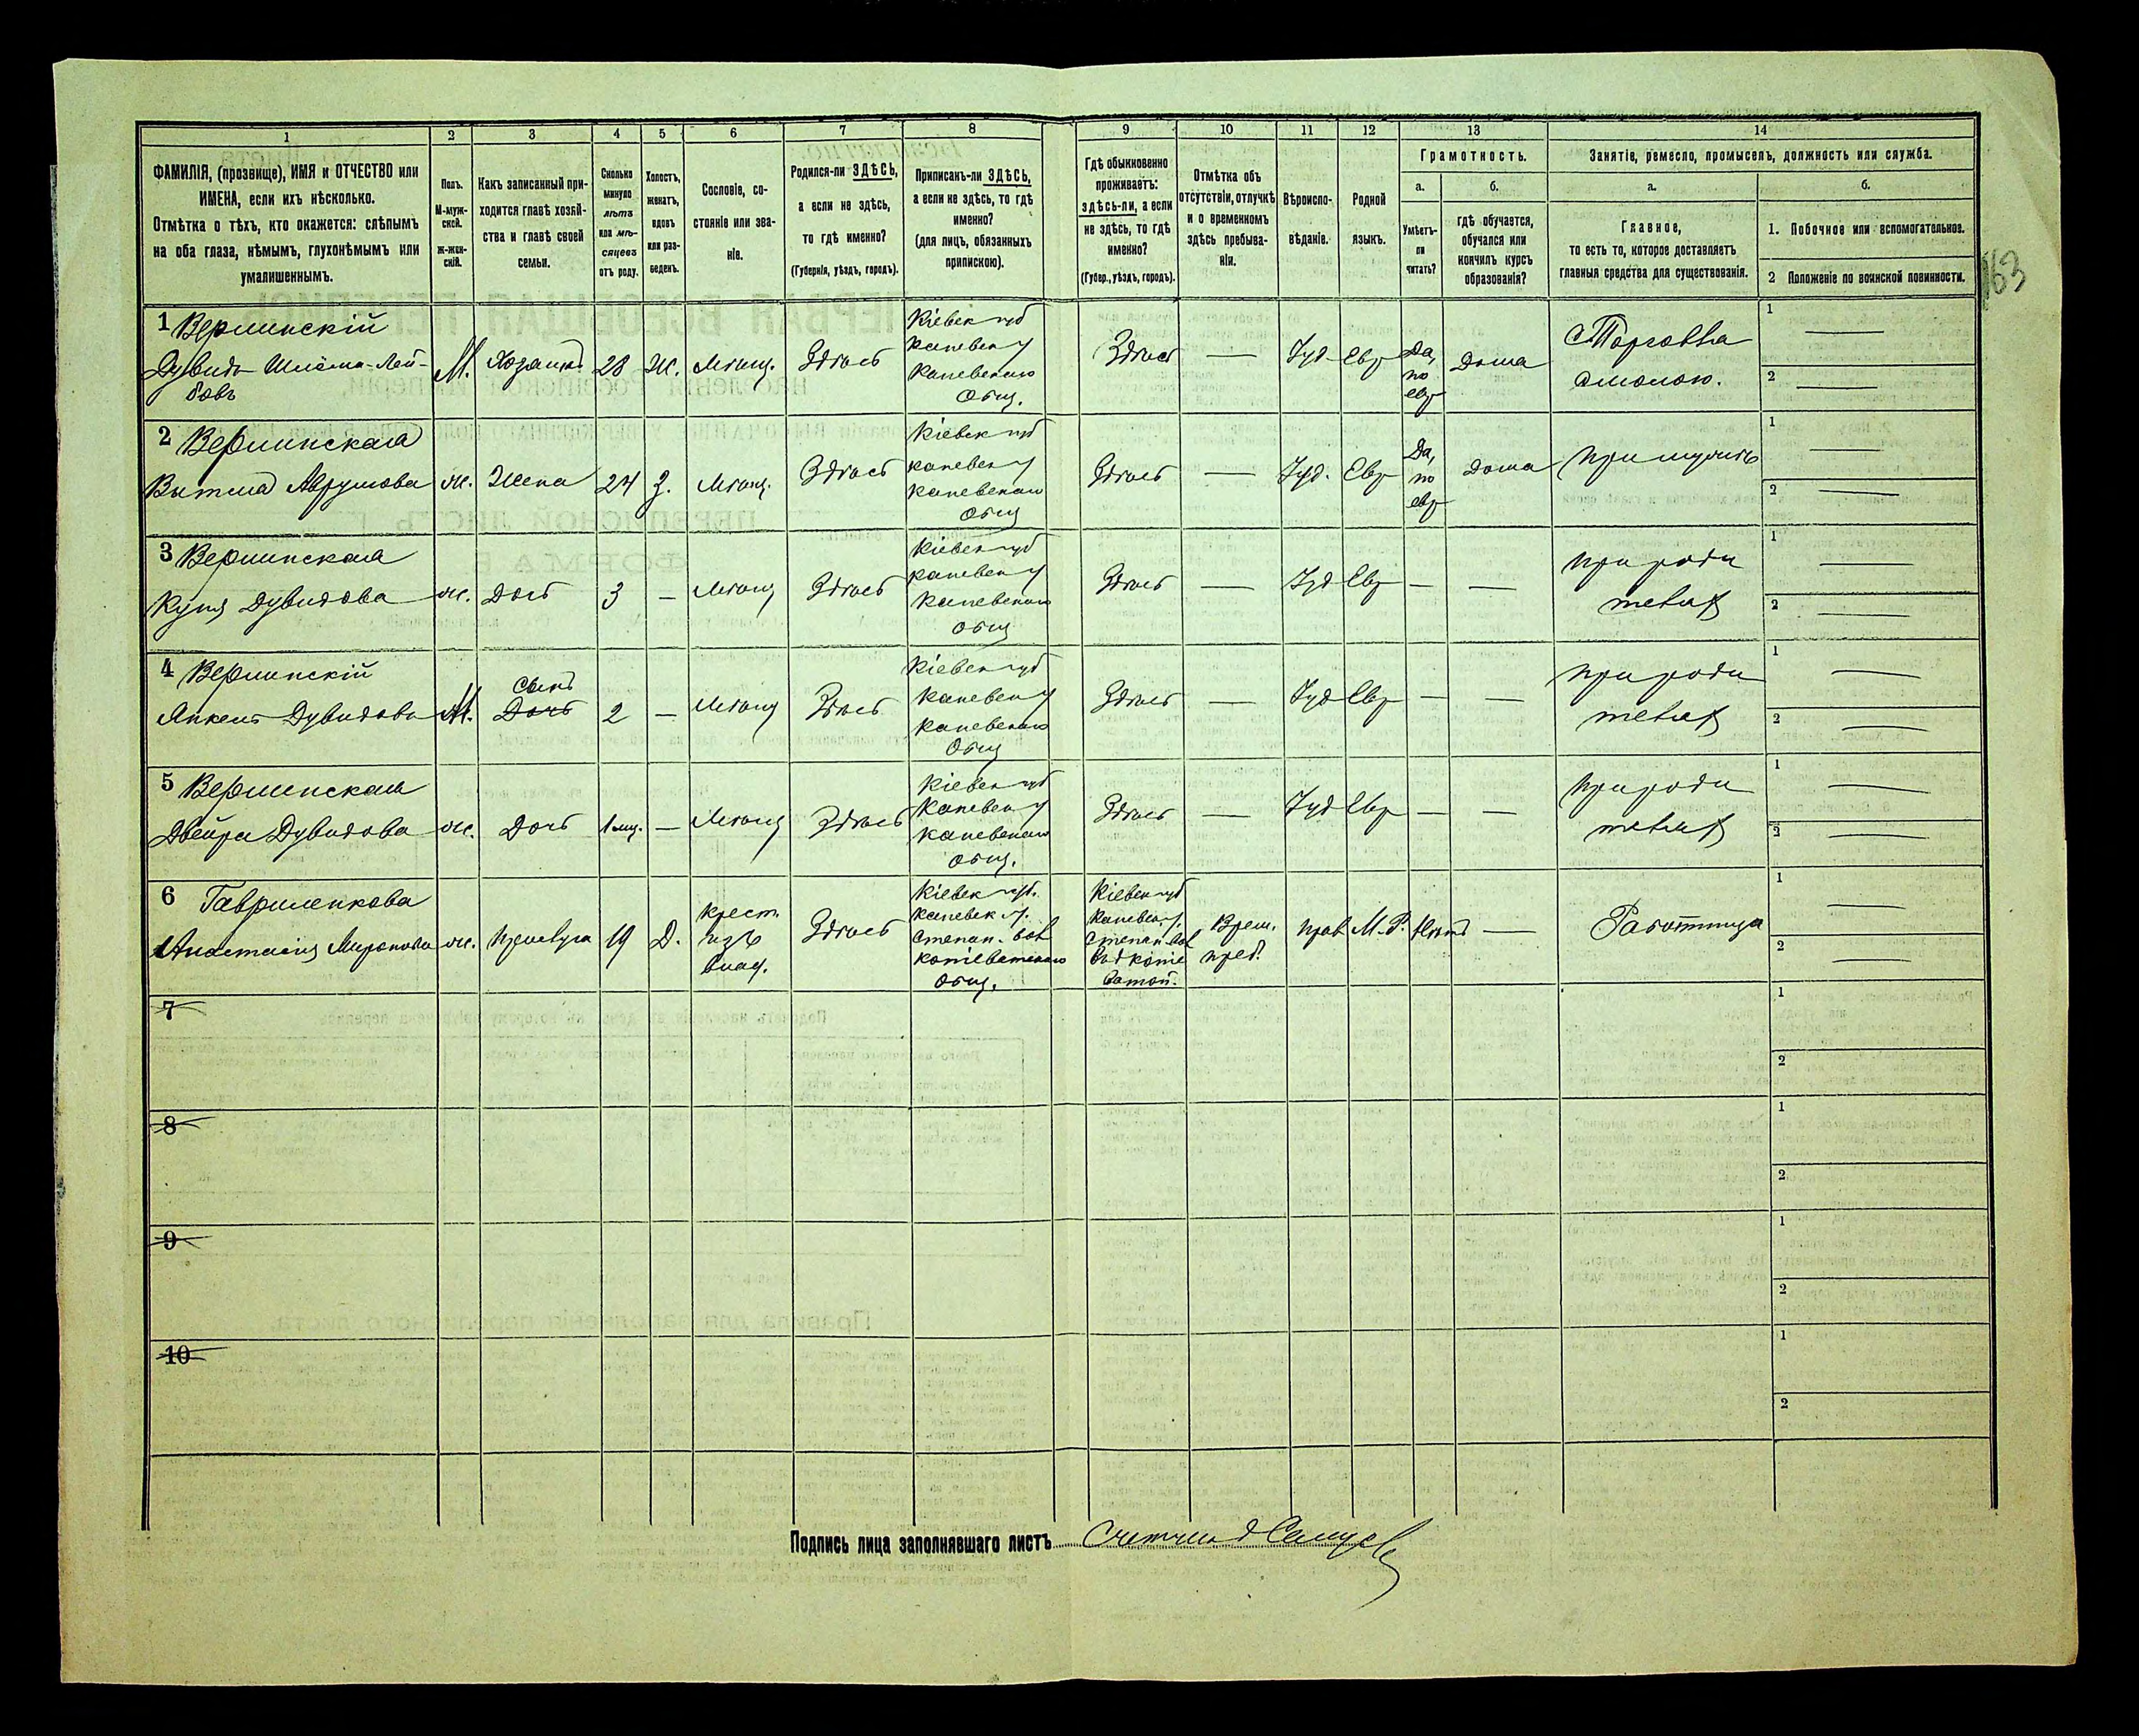 1
2
3
4
5
6
7
8
9
10
11
12
13
14
ФАМИЛІЯ, (прозвище), ИМЯ и ОТЧЕСТВО или
ИМЕНА, если ихъ нѣсколько.
Отмѣтка о тѣхъ, кто окажется: слѣпымъ
на оба глаза, нѣмымъ, глухонѣмымъ или
умалишеннымъ.
Полъ.
М-муж-
ской.
ж-жен-
скій.
Какъ записанный при-
ходится главѣ хозяй-
ства и главѣ своей
семьи.
Сколько
минуло
лѣтъ
или мѣ-
сяцевъ
отъ роду.
Холостъ,
женатъ,
вдовъ
или раз-
веденъ.
Сословіе, со-
стояніе или зва-
ніе.
Родился-ли ЗДѢСЬ,
а если не здѣсь,
то гдѣ именно?
(Губернія, уѣздъ, городъ).
Приписанъ-ли ЗДѢСЬ,
а если не здѣсь, то гдѣ
именно?
(для лицъ, обязанныхъ
припискою).
Гдѣ обыкновенно
проживаетъ:
здѣсь-ли, а если
не здѣсь, то гдѣ
именно?
(Губер., уѣздъ, городъ).
Отмѣтка объ
отсутствіи, отлучкѣ
и о временномъ
здѣсь пребыва-
ніи.
Вѣроиспо-
вѣданіе.
Родной
языкъ.
Грамотность.
а.
Умѣетъ-
ли
читать?
б.
гдѣ обучается,
обучался или
кончилъ курсъ
образованія?
Занятіе, ремесло, промыселъ, должность или служба.
а.
Главное,
то есть то, которое доставляетъ
главныя средства для существованія.
б.
1. Побочное или вспомогательное.
2 Положеніе по воинской повинности.
163
1 Вершинскій
Дувидъ Шлёма-Лей-
бовъ
М.
Хозяинъ
28
Ж.
Мѣщ.
Здѣсь
Кіевск губ
каневск у
каневскаго
Общ.
Здѣсь
—
Іуд
Евр
Да,
по
евр
дома
Торговля
смолою.
1 —
2 —
2 Вершинская
Аврумова
ж.
Жена
24
З.
Мѣщ.
Здѣсь
Кіевск губ
каневск у
каневскаго
Общ
Здѣсь
—
Іуд.
Евр
Да,
по
евр
дома
при мужѣ
1 —
2 —
3 Вершинская
Дувидова
ж.
Дочь
3
—
Мѣщ
Здѣсь
Кіевск губ
каневск у
каневскаго
Общ
Здѣсь
—
Іуд
Евр
—
—
при роди
телях
1 —
2 —
4 Вершинскій
Янкель Дувидовъ
М.
сынъ
Дочь
2
—
Мѣщ
Здѣсь
Кіевск губ
каневск у
каневскаго
Общ
Здѣсь
—
Іуд
Евр
—
—
при роди
телях
1 —
2 —
5 Вершинская
Двейра Дувидова
ж.
Дочь
1 мц.
—
Мѣщ
Здѣсь
Кіевск губ
каневск у
каневскаго
Общ.
Здѣсь
—
Іуд
Евр
—
—
при роди
телях
1 —
2 —
6 Гавриленкова
Анастасія Миронова
ж.
прислуга
19
Д.
Крест.
изъ
влад.
Здѣсь
Кіевск губ.
каневск у.
степан. вол
Общ.
Кіевск губ
каневск у.
степан. вол
Врем.
преб.
прав
М-Р.
Нѣтъ
—
Работница
1 —
2 —
7
1
2
8
1
2
9
1
2
10
1
2
Подпись лица заполнявшаго листъ
Счетчикъ